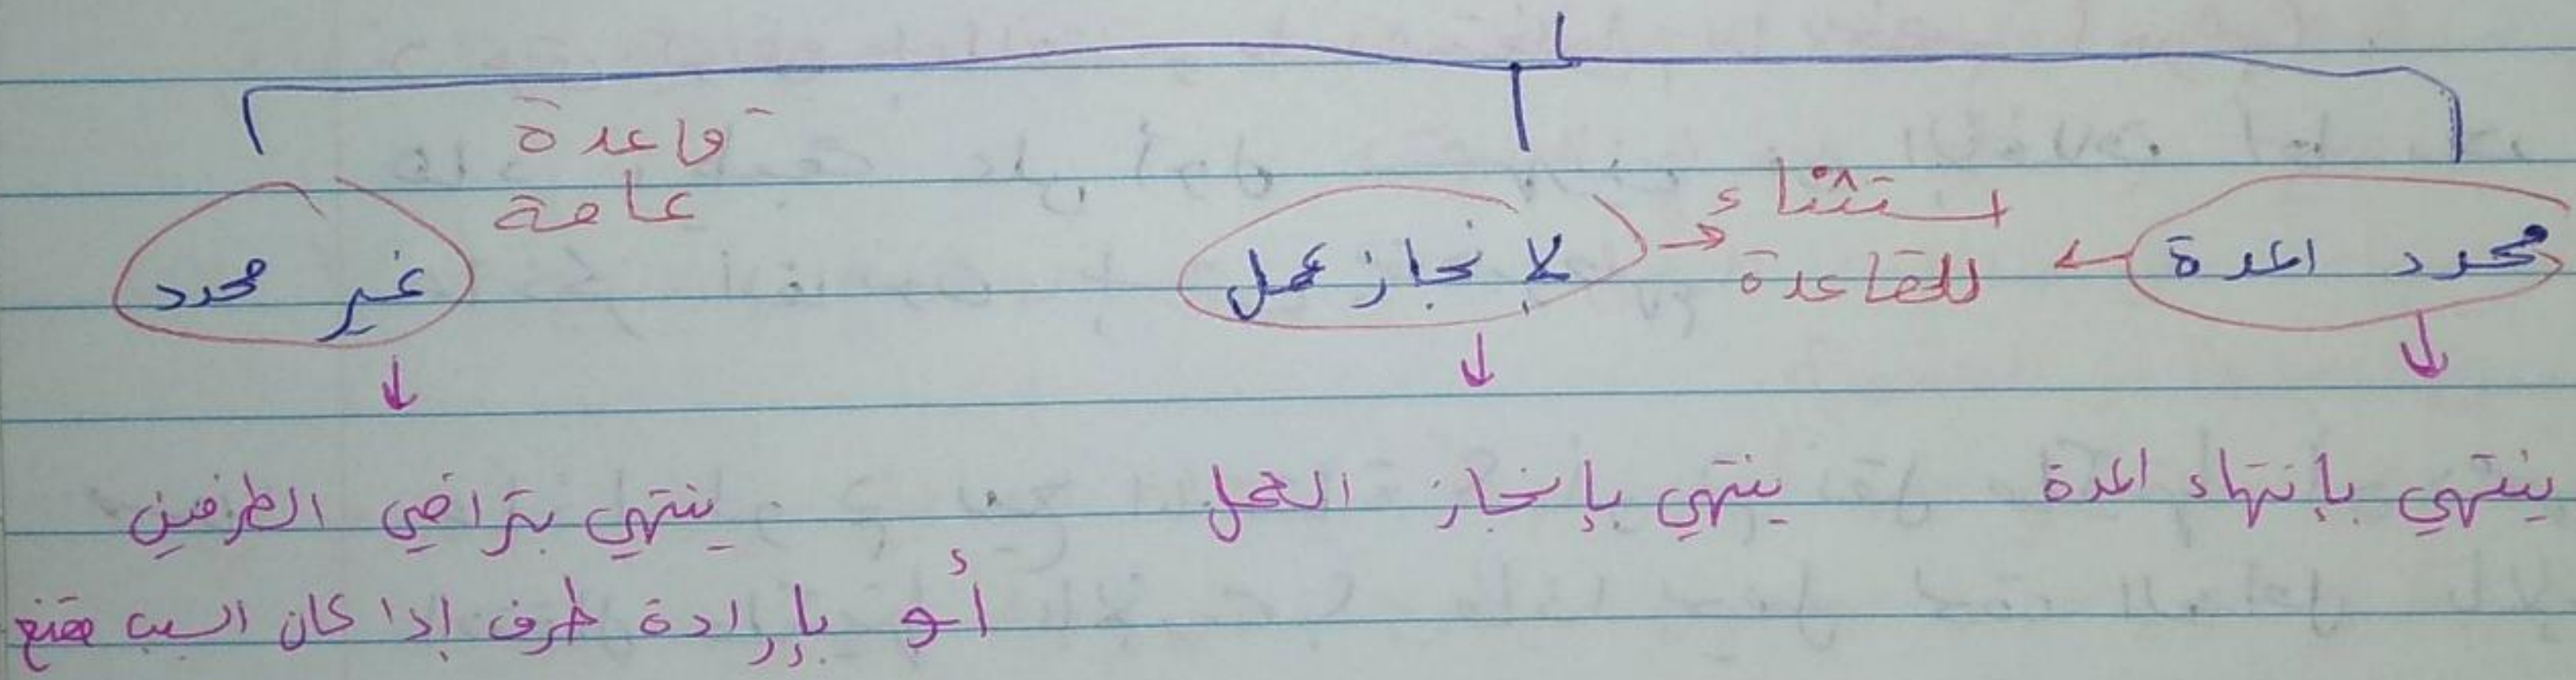 محدد المدة
استثناء
للقاعدة
لإنجاز عمل
قاعدة
عامة
غير محدد
ينتهي بإنتهاء المدة
ينتهي بإنجاز العمل
ينتهي بتراضي الطرفين
أو بإرادة طرف إذا كان السبب مقنع